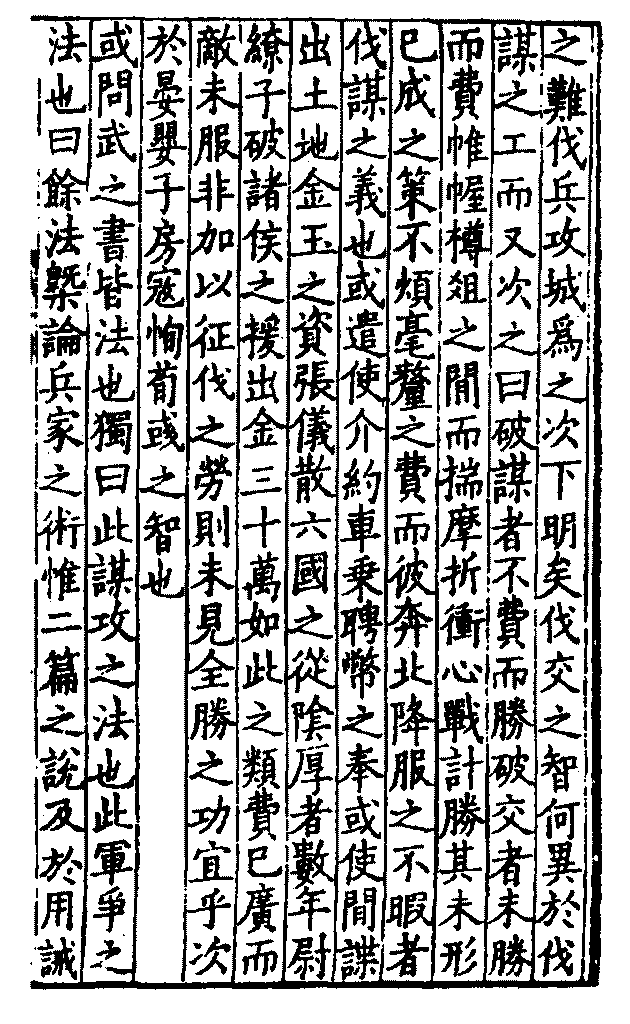 之難伐兵攻城為之次下明矣伐交之智何異於伐
謀之工而又次之曰破謀者不費而勝破交者未勝
而費帷幄樽俎之間而揣摩折衝心戰計勝其未形
已成之策不煩毫釐之費而彼奔北降服之不暇者
伐謀之義也或遣使介約車乘聘幣之奉或使間諜
出土地金玉之資張儀散六國之從陰厚者數年尉
繚子破諸侯之援出金三十萬如此之類費已廣而
敵未服非加以征伐之勞則未見全勝之功宜乎次
於晏嬰子房寇恂荀彧之智也
或問武之書皆法也獨曰此謀攻之法也此軍爭之
法也曰餘法槩論兵家之術惟二篇之說及於用誡